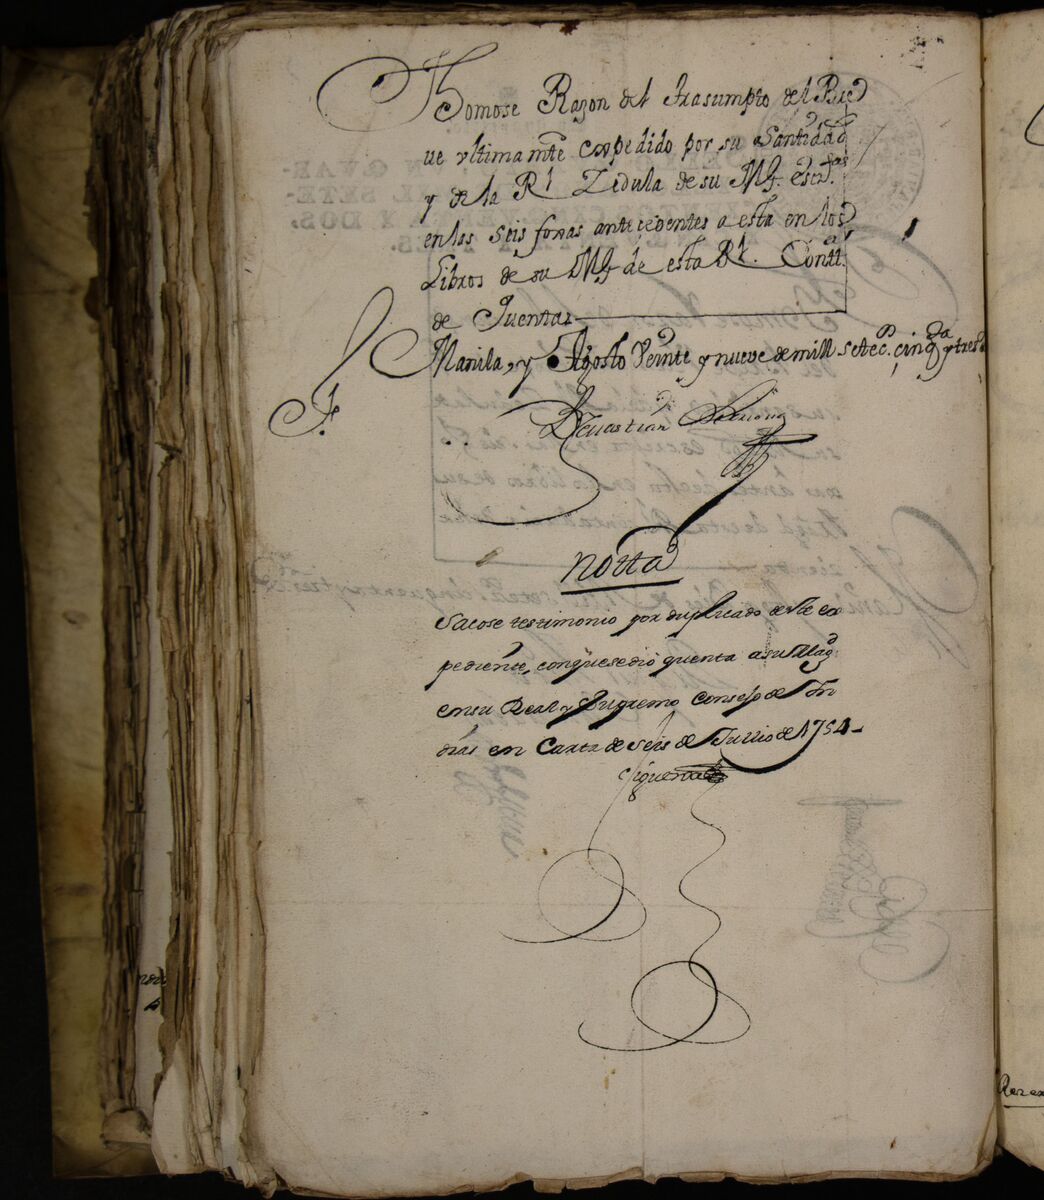 Thomose Razon del trasumpto del Bre
ue vltimamte expedido por su Santidad
y de la Rl Zedula de su Mgd. escrtas
en las seis foxas antecedentes a esta en los
Libros de su Mgd de esta Rl. Contta.
de Quentas
Manila, y Agosto Veinte y nueve de mill setecos. cinqta y tres
Seuastian
notta
Sacose testimonio por duplicado deste ex
pediente, conquesedio quenta a su Mag
ensu Real y Supremo Consejo de Yn
dias en Carta de Seis de Jullio de 1754-